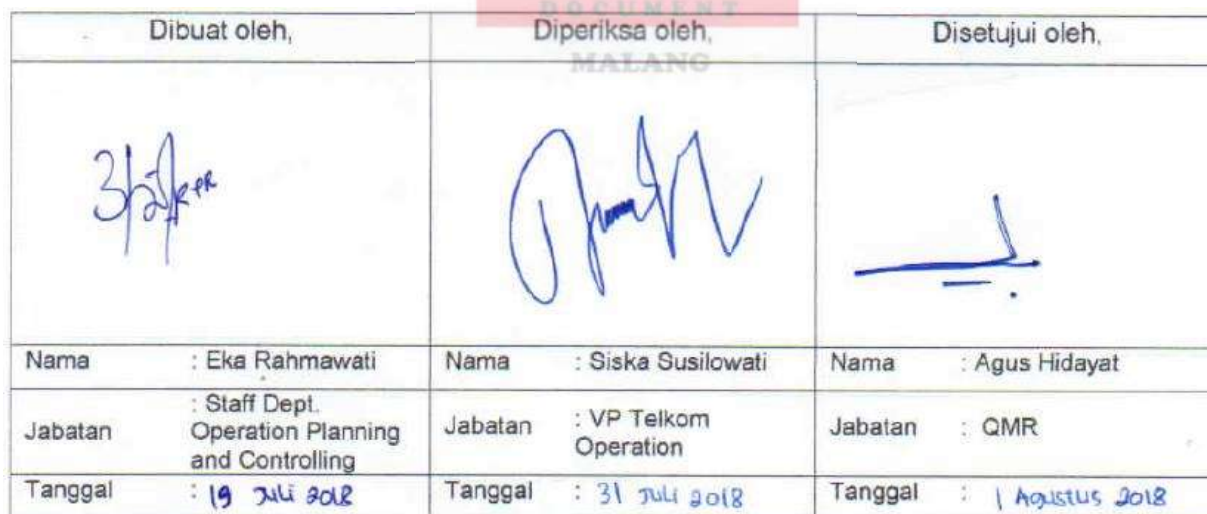 DOCUMENT
Dibuat oleh, Diperiksa oleh, Disetujui oleh,
MALANG
Nama : Eka Rahmawati Nama : Siska Susilowati Nama : Agus Hidayat
Jabatan : Staff Dept. Operation Planning and Controlling Jabatan : VP Telkom Operation Jabatan : QMR
Tanggal : 19 Juli 2018 Tanggal : 31 Juli 2018 Tanggal : 1 Agustus 2018